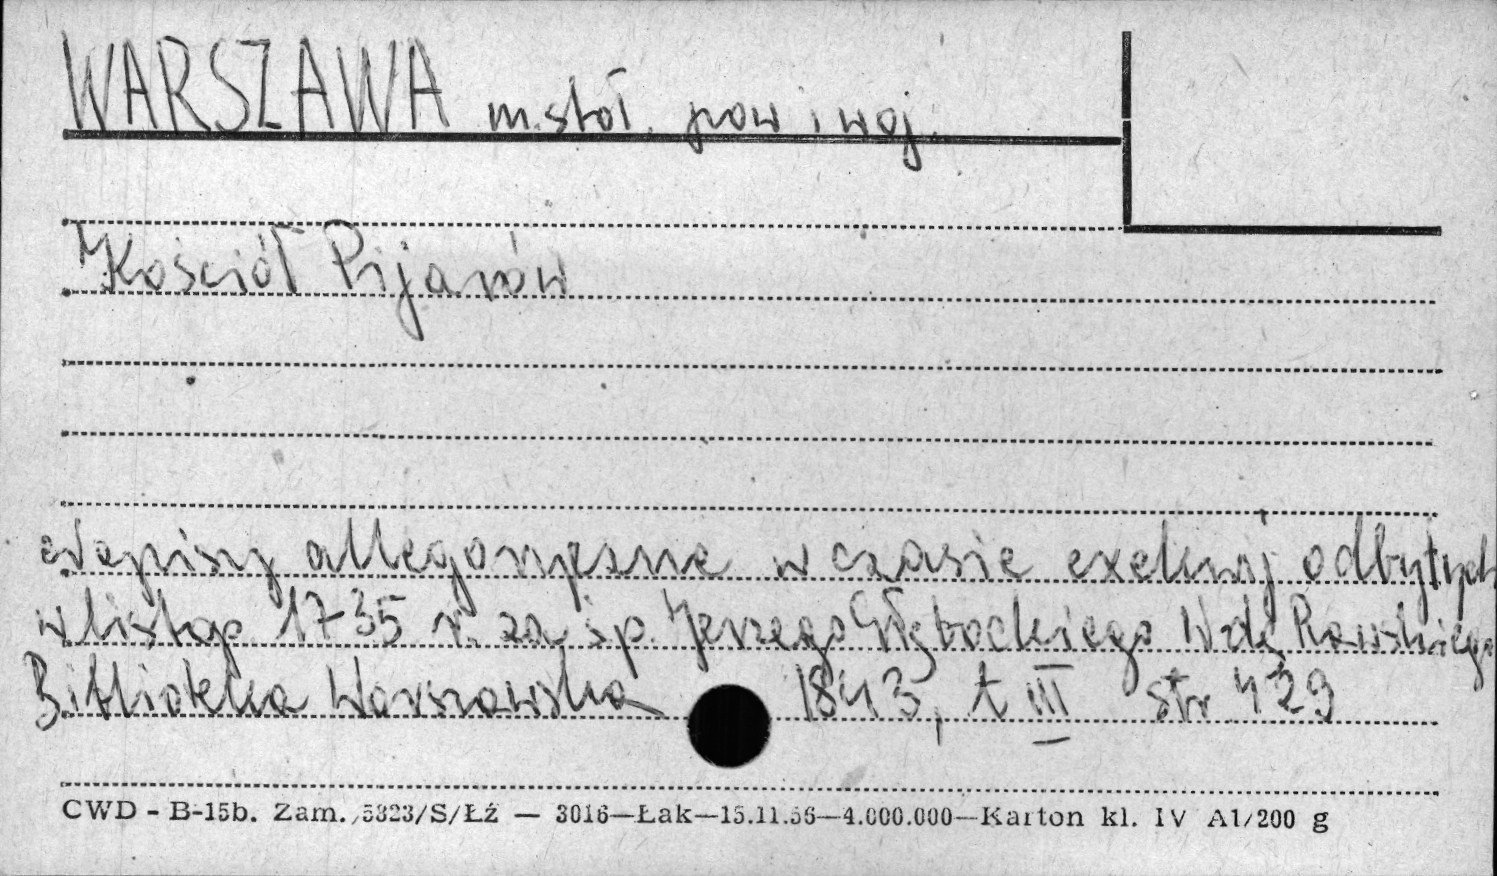 WARSZAWA m. stoł. pow i woj.
Kościół Pijarów
Napisy allegoryczne w czasie exekwij odbytych
w listop 1735 r. za ś.p. Jerzego Głębockiego Wdę Rawskiego
Biblioteka Warszawska 1843, t III str 429
CWD - B-15b. Zam. 5323/S/Łź — 3016—Łak—15.11.56—4.000.000—Karton kl. IV A1/200 g